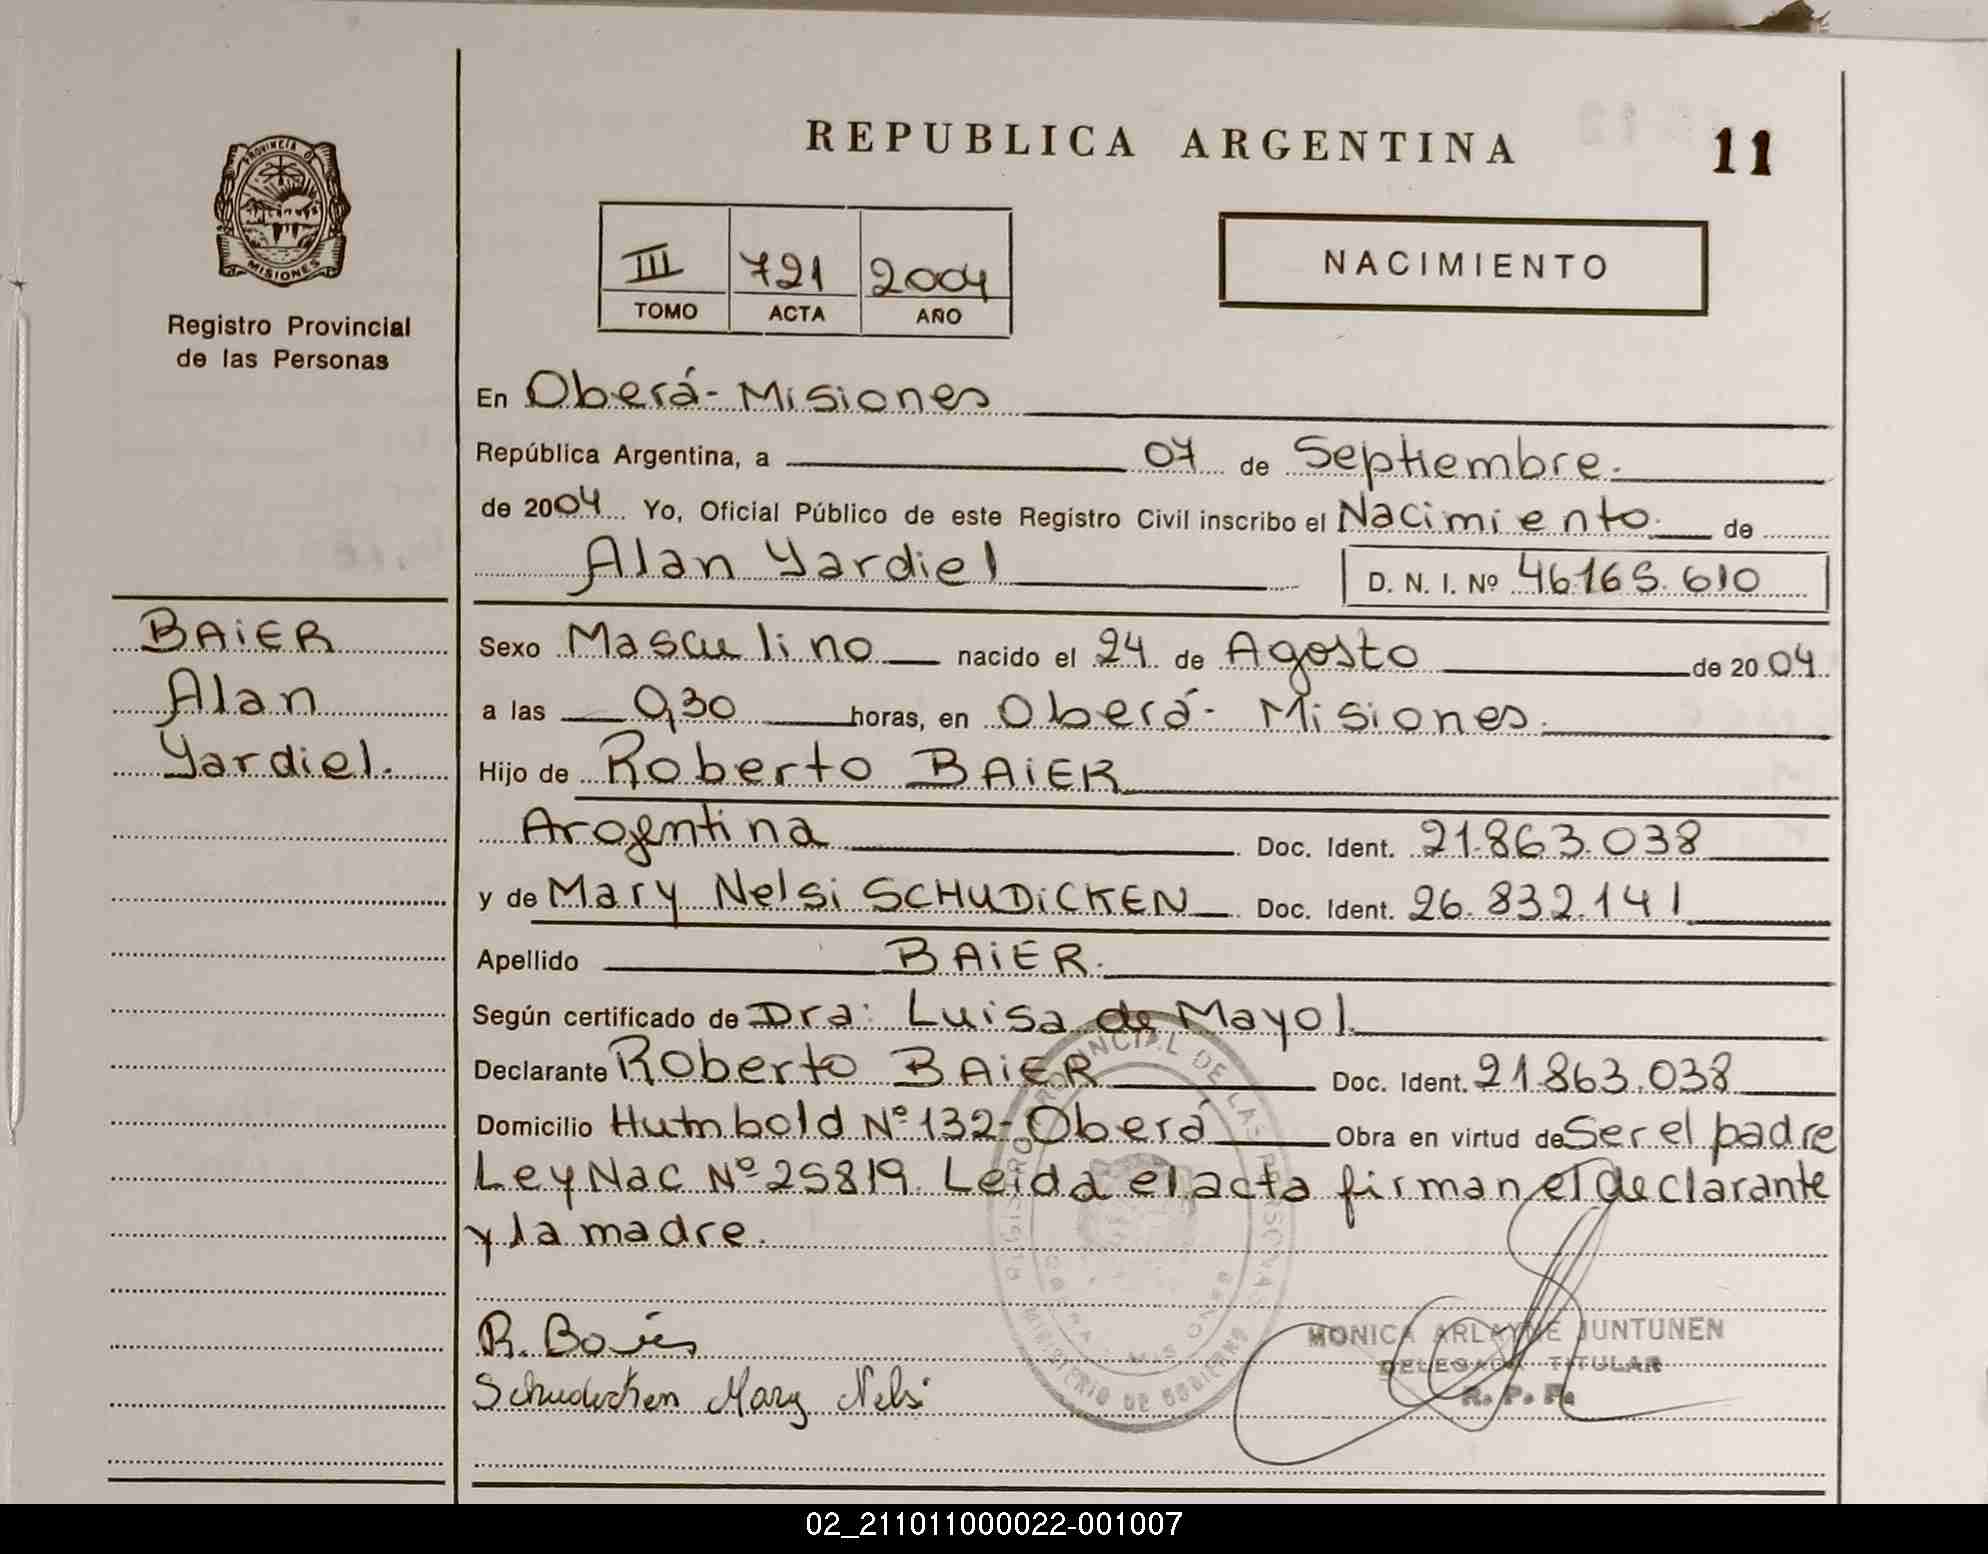 REPUBLICA ARGENTINA
11
PROVINCIA DE
MISIONES
Registro Provincial
de las Personas
III 721 2004
TOMO ACTA AÑO
NACIMIENTO
En Oberá - Misiones
República Argentina, a 07 de Septiembre.
de 2004 Yo, Oficial Público de este Registro Civil inscribo el Nacimiento. de
Alan Yardiel D. N. I. Nº 46165.610
BAiER
Alan
Yardiel.
Sexo Masculino nacido el 24 de Agosto de 2004
a las 0,30 horas, en Oberá - Misiones.
Hijo de Roberto BAiER
Argentina Doc. Ident. 21.863.038
y de Mary Nelsi SCHUDiCKEN Doc. Ident. 26.832.141
Apellido BAiER.
Según certificado de Dra: Luisa de Mayol
Declarante Roberto BAiER Doc. Ident. 21.863.038
Domicilio Humbold Nº 132 - Oberá Obra en virtud de Ser el padre
Ley Nac Nº 25819. Leida el acta firman el declarante
y la madre.
REGISTRO PROVINCIAL DE LAS PERSONAS
MINISTERIO DE GOBIERNO
R. Baier
Schudicken Mary Nelsi
MONICA ARLAYNE JUNTUNEN
DELEGADA TITULAR
R. P. P.
02_211011000022-001007